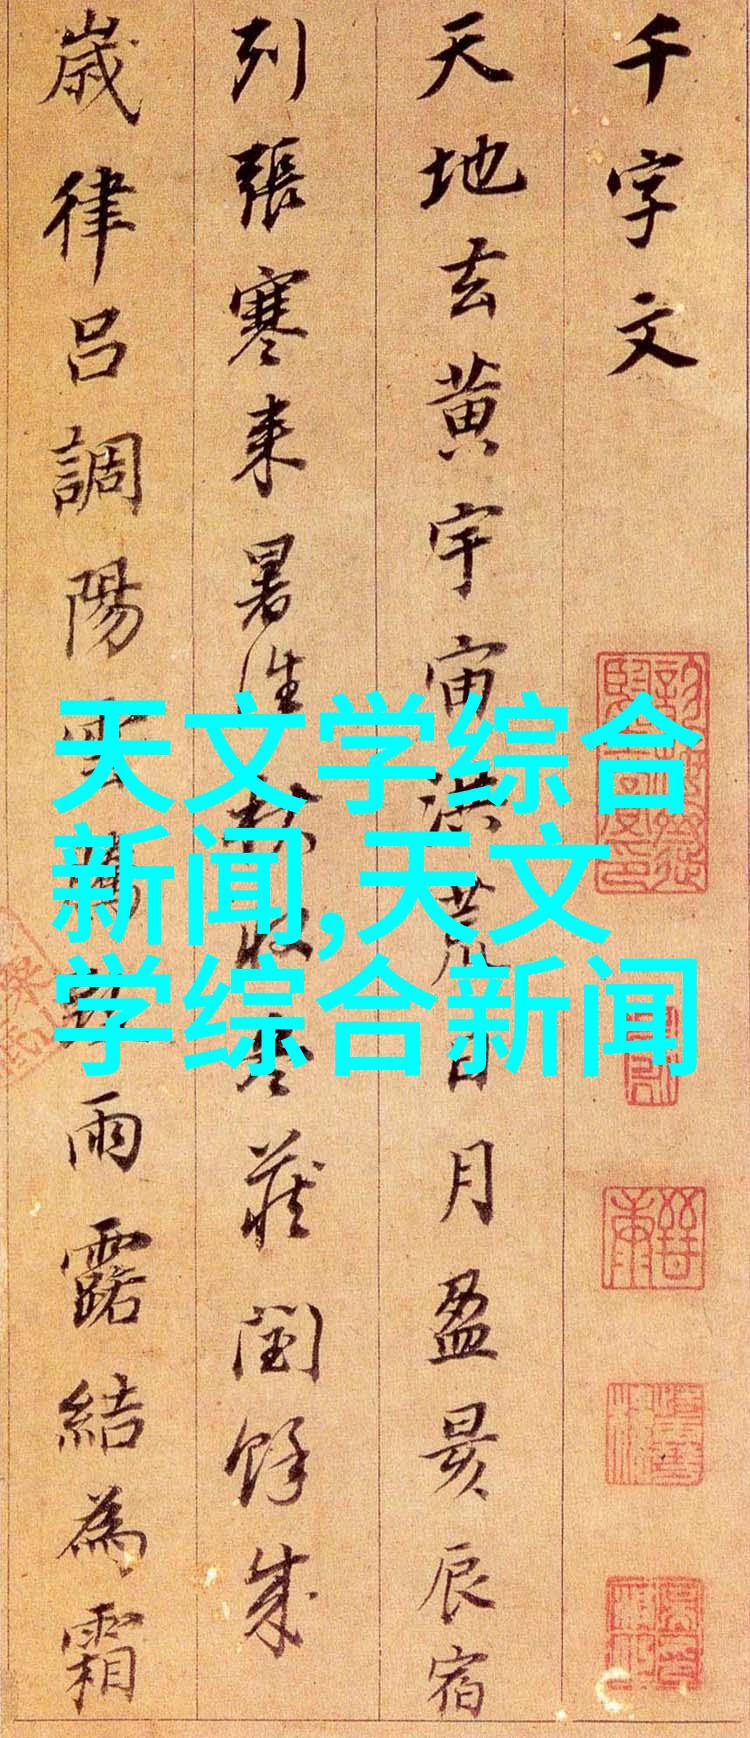 千字文
天地玄黄宇宙洪荒日月盈昃辰宿
列張寒来暑往秋收冬蔵閏餘成
歲律吕調陽雲騰致雨露結為霜
天文学综合
新闻,天文
学综合新闻